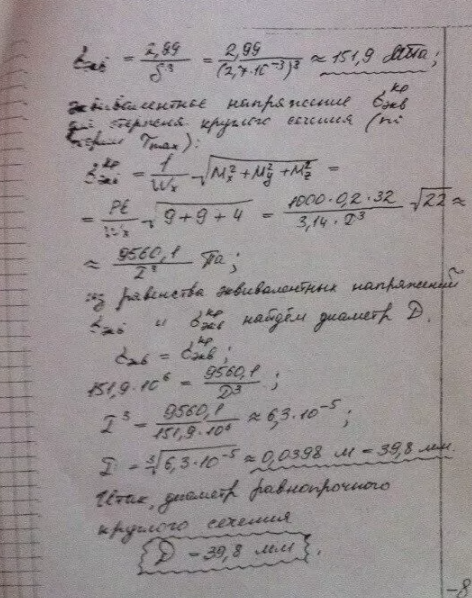 σ_экв = 2,99/δ³ = 2,99/(2,7·10⁻³)³ ≈ 151,9 МПа;
эквивалентное напряжение σ_экв^кр
для стержня круглого сечения (по
теории τ_max):
σ_экв^кр = 1/Wx √(Mx² + My² + Mz²) =
= Pl/Wx √(9+9+4) = 1000·0,2·32/(3,14·D³) √22 ≈
≈ 9560,1/D³ Па;
из равенства эквивалентных напряжений
σ_экв и σ_экв^кр найдём диаметр D.
σ_экв = σ_экв^кр;
151,9·10⁶ = 9560,1/D³;
D³ = 9560,1/(151,9·10⁶) ≈ 6,3·10⁻⁵;
D = ∛(6,3·10⁻⁵) ≈ 0,0398 м = 39,8 мм.
Итак, диаметр равнопрочного
круглого сечения
D = 39,8 мм.
-8